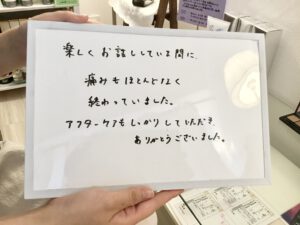 楽しくお話ししている間に、
痛みもほとんどなく
終わっていました。
アフターケアもしっかりしていただき
ありがとうございました。